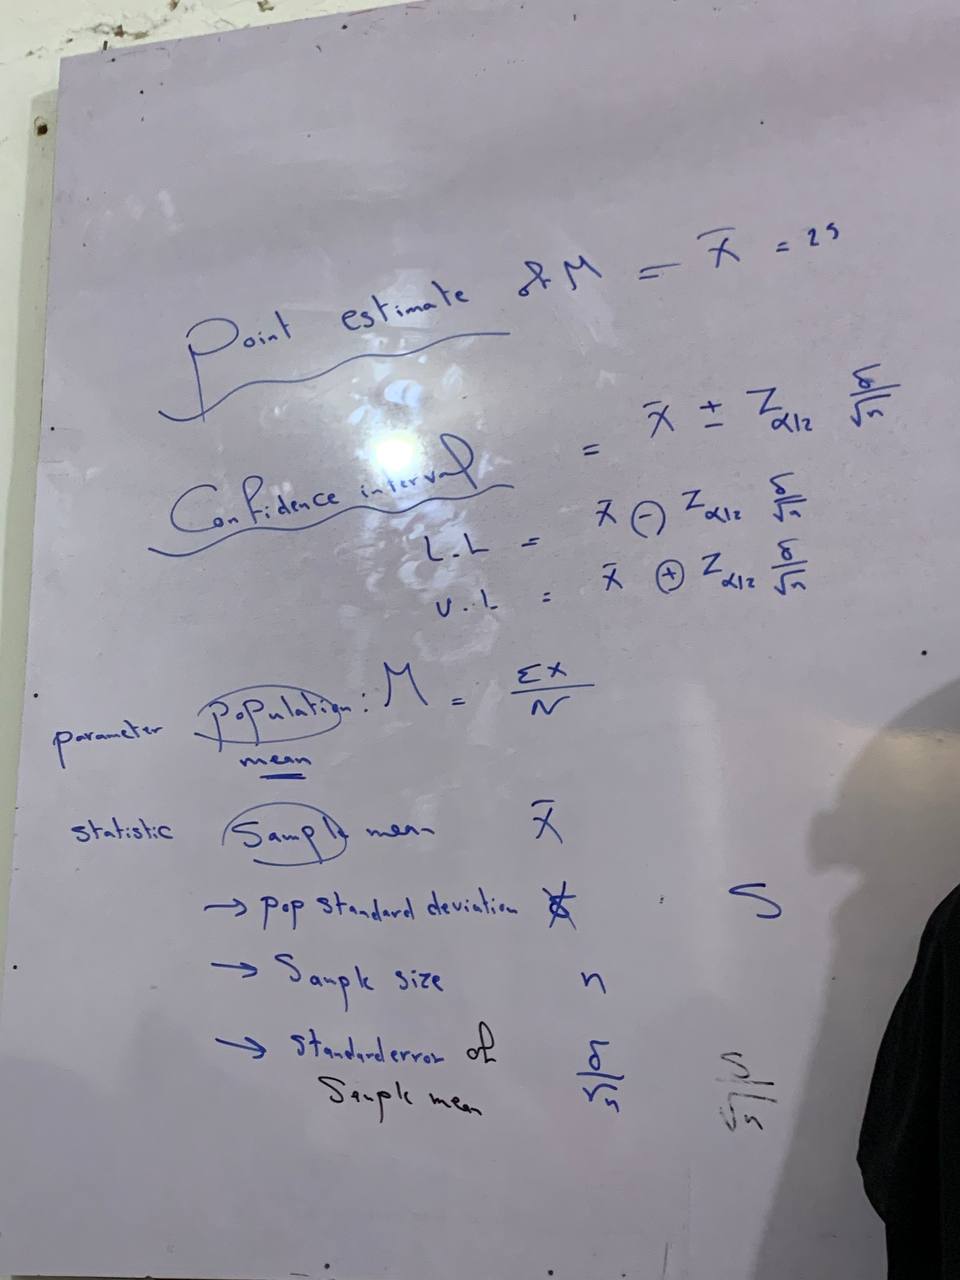 Point estimate of M = x̄ = 25
Confidence interval = x̄ ± Z α/2 δ/√n
L.L = x̄ ⊖ Z α/2 δ/√n
U.L = x̄ ⊕ Z α/2 δ/√n
parameter population: M = Σx/N
mean
statistic Sample mean x̄
→ pop standard deviation S
→ Sample size n
→ Standard error of δ/√n S/√n
Sample mean